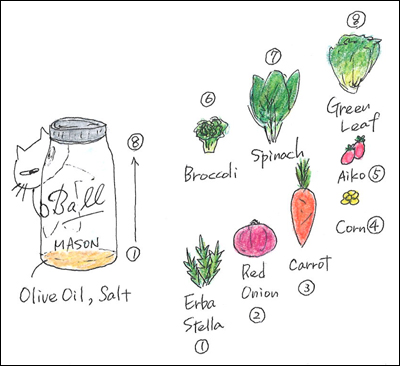 ⑧
Ball
MASON
①
Olive Oil, Salt
⑧
Green
Leaf
⑦
Spinach
⑥
Broccoli
Aiko ⑤
Corn ④
Carrot
③
Red
Onion
②
Erba
Stella
①